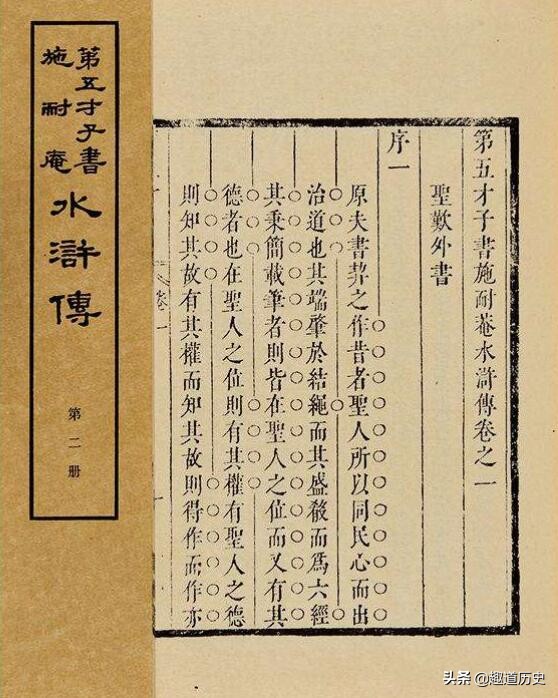 第五才子書
施耐庵
水滸傳
第二册
第五才子書施耐菴水滸傳卷之一
聖歎外書
序一
原夫書契之作昔者聖人所以同民心而出
治道也其端肇於結繩而其盛殽而爲六經
其秉簡載筆者則皆在聖人之位而又有其
德者也在聖人之位則有其權有聖人之德
則知其故有其權而知其故則得作而作亦
头条 @趣道历史